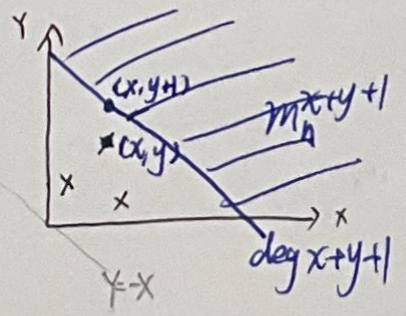 Y
(x, y+1)
m^{x+y+1}
(x, y)
x x
X
deg x+y+1
Y=-X